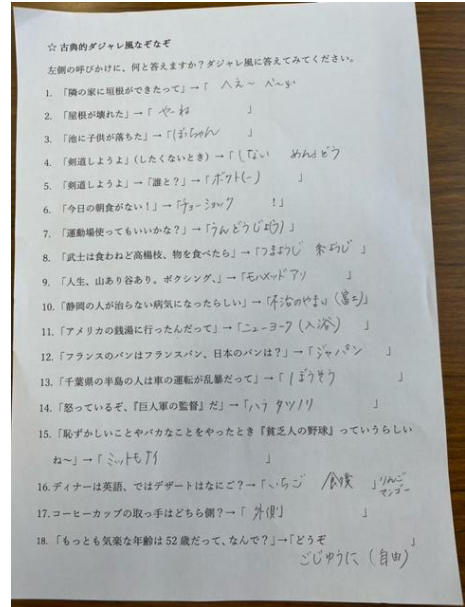 ☆ 古典的ダジャレ風なぞなぞ
左側の呼びかけに、何と答えますか？ダジャレ風に答えてみてください。
1. 「隣の家に垣根ができたって」→「 へえ〜 べ〜か
2. 「屋根が壊れた」→「 や〜ね 」
3. 「池に子供が落ちた」→「ぼっちゃん 」
4. 「剣道しようよ」(したくないとき)→「しない めんどう
5. 「剣道しようよ」→「誰と？」→「ボクト(ー) 」
6. 「今日の朝食がない！」→「チョーショック !」
7. 「運動場使ってもいいかな？」→「うんどうじょ(う) 」
8. 「武士は食わねど高楊枝、物を食べたら」→「つまようじ 朱ようじ 」
9. 「人生、山あり谷あり。ボクシング、」→「モハメッド アリ 」
10. 「静岡の人が治らない病気になったらしい」→「不治のやまい（富士）」
11. 「アメリカの銭湯に行ったんだって」→「ニューヨーク（入浴） 」
12. 「フランスのパンはフランスパン、日本のパンは？」→「ジャパン 」
13. 「千葉県の半島の人は車の運転が乱暴だって」→「ぼうそう 」
14. 「怒っているぞ、『巨人軍の監督』だ」→「ハラ タツノリ 」
15. 「恥ずかしいことやバカなことをやったとき『貧乏人の野球』っていうらしい
ね〜」→「ミットモナイ 」
16. ディナーは英語、ではデザートはなにご？→「いちご 食後 」りんご
マンゴー
17. コーヒーカップの取っ手はどちら側？→「 外側 」
18. 「もっとも気楽な年齢は 52 歳だって、なんで？」→「どうぞ 」
ごじゆうに（自由）